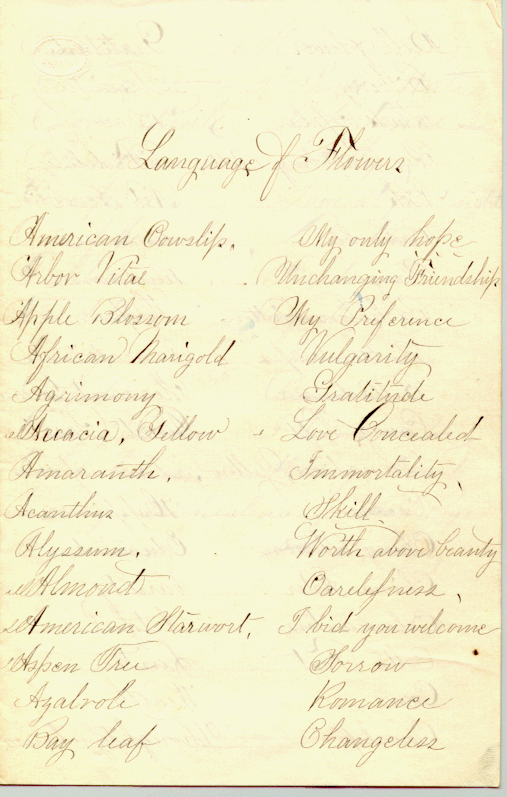 Language of Flowers
American Cowslip. My only hope
Arbor Vitae . Unchanging Friendship
Apple Blossom My Preference
African Marigold Vulgarity
Agrimony Gratitude
Acacia, Yellow Love Concealed
Amaranth. Immortality
Acanthus Skill
Alyssum. Worth above beauty
Almond Carelessness
American Starwort. I bid you welcome
Aspen Tree Sorrow
Azalvole Romance
Bay leaf Changeless